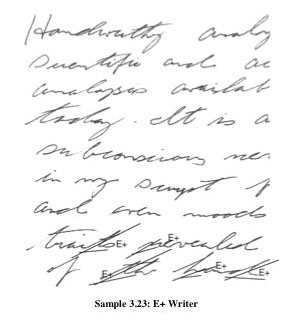 Handwrithy analy
scientific and ac
analysis availab
today. It is a
subconscious ner
in my script f
and even moods
traits E+ E+ revealed
of E+ the E+ E+
Sample 3.23: E+ Writer